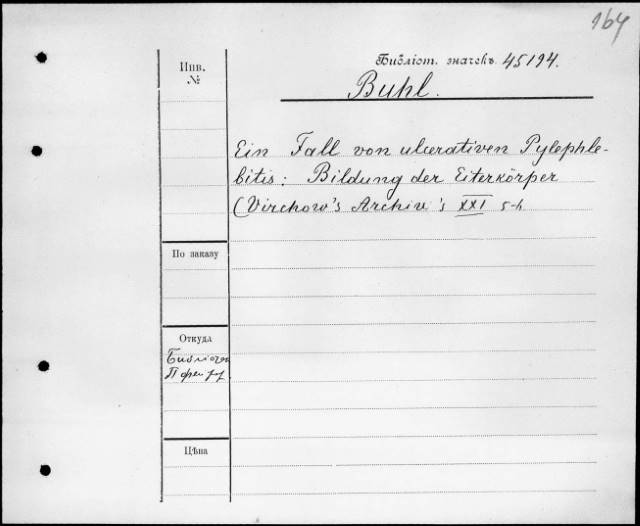 164
Инв.
№
Библіот. значекъ 45194.
Buhl.
Ein Fall von ulcerativen Pylephle-
bitis: Bildung der Eiterkörper
(Virchow's Archiv's XXI 5-h
По заказу
Откуда
Библіотеки
П
Цѣна